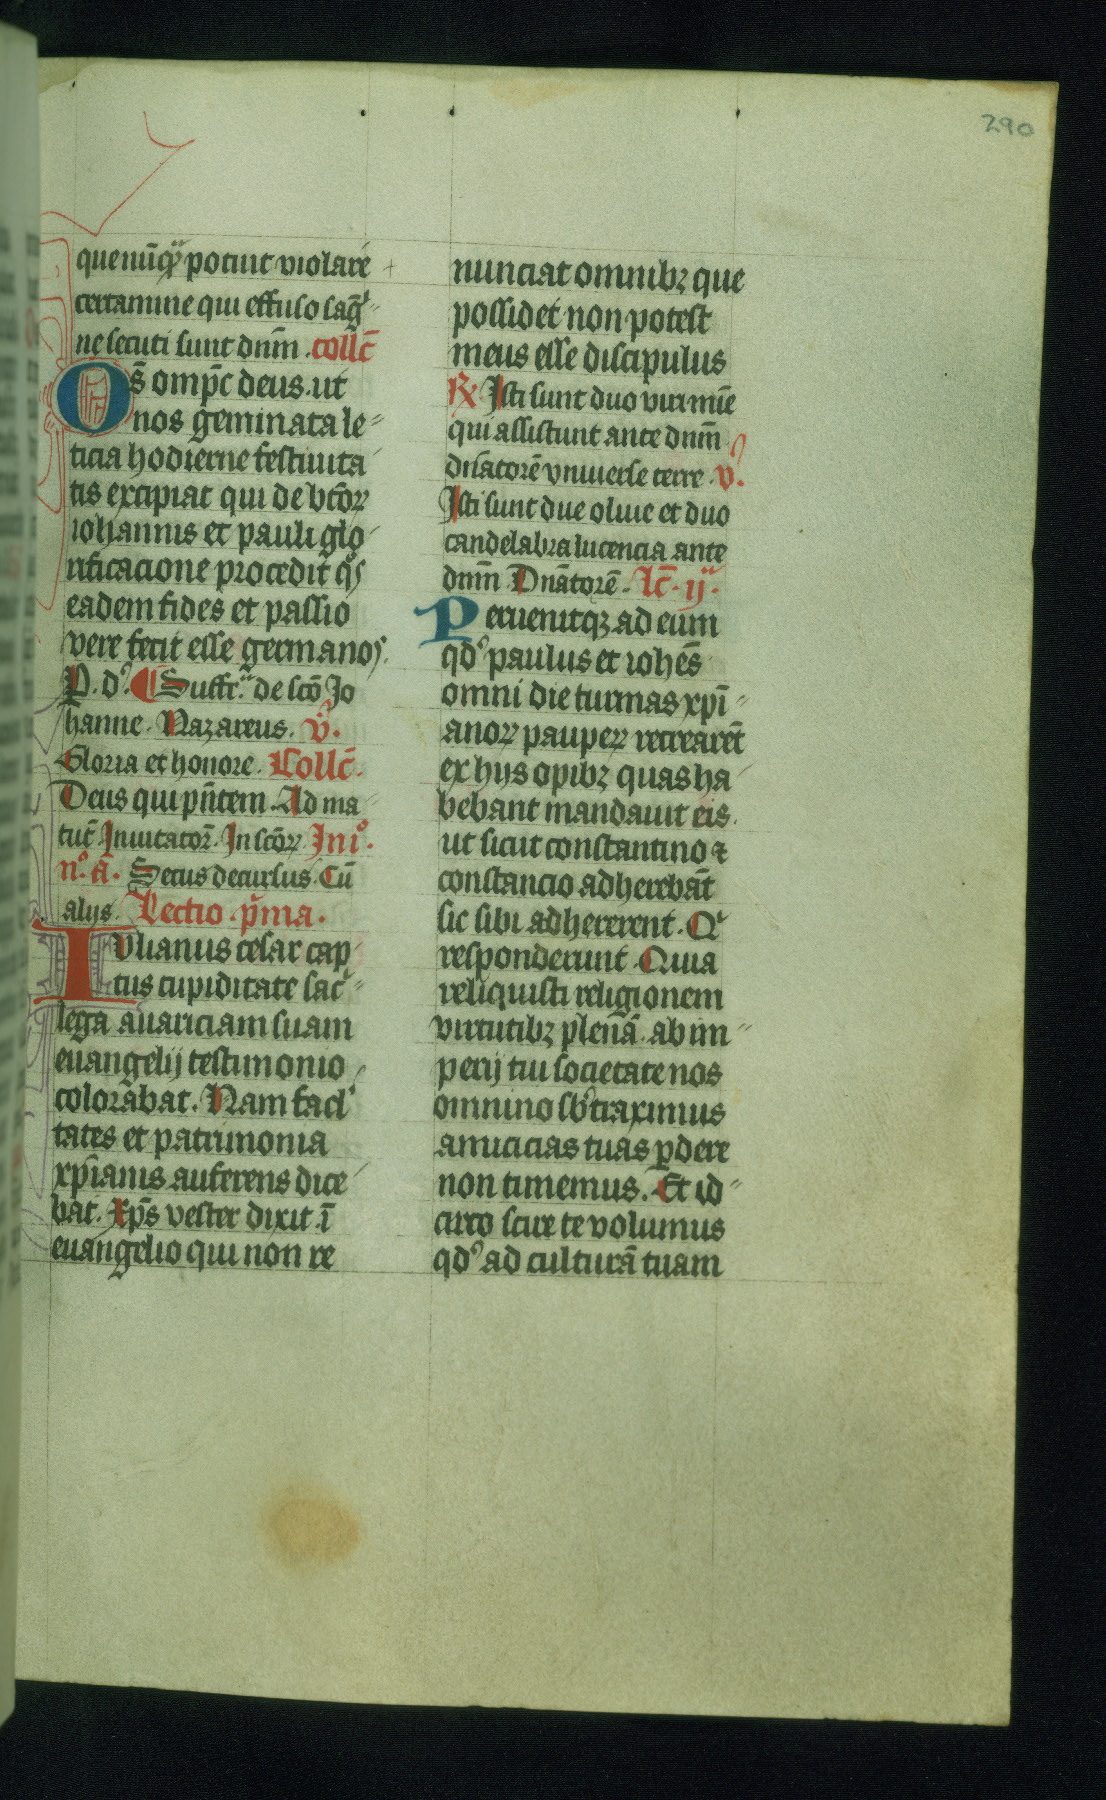 290
que nūqꝫ potuit violare
certamine qui effuso sāg͛
ne secuti sunt dnm̄ . collc̄
Os̄ omp̄c deus . ut
nos geminata le
ticia hodierne festiuita
tis excipiat qui de bt̄oꝝ
iohannis et pauli glo
rificacione procedit qͦs
eadem fides et passio
vere fecit esse germanos .
P . d͛ . ¶ Suffr̄ . de scō Jo
hanne . Nazareus . v̄ .
Gloria et honore . Collc̄ .
Deus qui pn̄tem . Ad ma
tut̄ Inuitator̄ . In scōꝝ . In iͦ .
nͦ . ā . Secus decursus . Cū
alijs . Lectio pͥma .
Iulianus cesar cap
tus cupiditate sac͛
lega auariciam suam
euangelij testimonio
colorābat . Nam facl͛
tates et patrimonia
xp̄ianis auferens dice
bat . Xp̄s vester dixit ī
euangelio qui non re
nunciat omnibꝫ que
possidet non potest
meus esse discipulus
℟ Isti sunt duo viri mīe
qui assistunt ante dnm̄
dn̄atorē vniuerse terre . v̄ .
Isti sunt due oliue et duo
candelabra lucencia ante
dnm̄ Dn̄atorē . lc̄ . ij .
Peruenitqꝫ ad eum
qd͛ paulus et ioh̄es
omni die turmas xpī
anoꝝ paupeꝝ recrearēt
ex hijs opibꝫ quas ha
bebant mandauit eis .
ut sicut constantino ⁊
constancio adherebāt
sic sibi adhererent . Qͥ
responderunt . Quia
reliquisti religionem
virtutibꝫ plenā . ab im
perij tui societate nos
omnino sb͛traximus
amicicias tuas ꝑdere
non timemus . Et id
circo scire te volumus
qd͛ ad culturā tuam